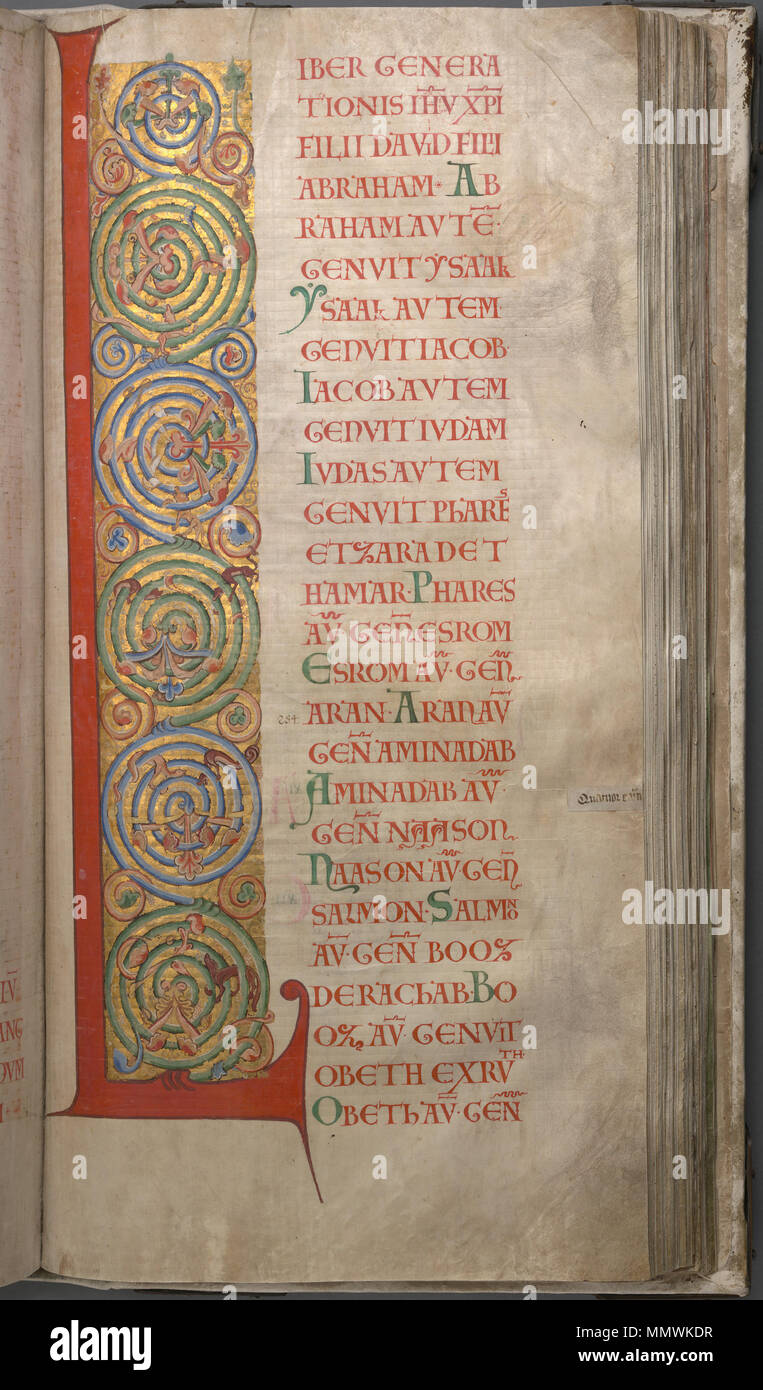 LIBER GENERA
TIONIS IH̅V X̅P̅I
FILII DAVID FILII
ABRAHAM· AB
RAHAM AVTE̅·
GENVIT YSAAK
YSAAK AVTEM
GENVIT IACOB·
IACOB AVTEM
GENVIT IVDAM
IVDAS AVTEM
GENVIT PHARES
ET ZARAD E T
HAMAR· PHARES
AV̅· GEN̅ ESROM
ESROM AV̅· GEN̅
ARAN· ARAN AV̅
GEN̅ AMINADAB
AMINADAB AV̅·
GEN̅ NAASON
NAASON AV̅· GEN̅
SALMON· SALMON
AV̅· GEN̅ BOOZ
DE RACHAB· BO
OZ AV̅· GENVIT
OBETH EX RVTH·
OBETH AV̅· GEN̅
284
LV̅
ANG
DVM
alamy
Image ID: MMWKDR
www.alamy.com